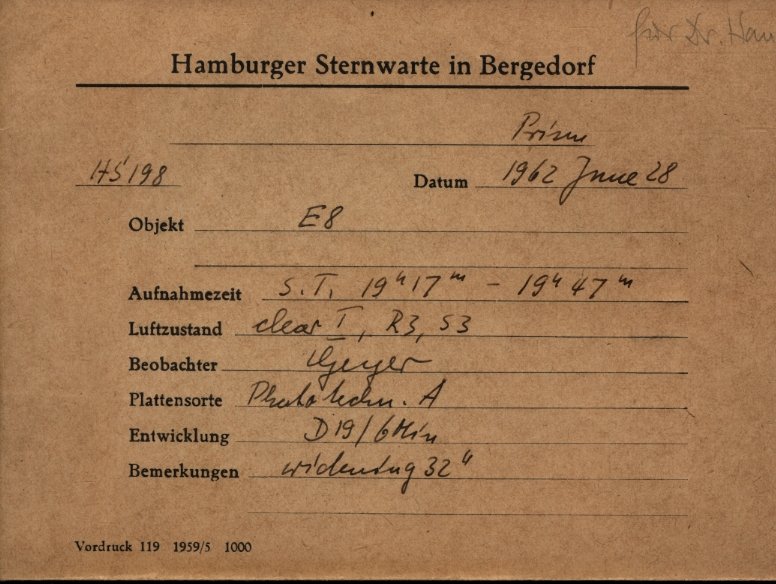 für Dr. Hau
Hamburger Sternwarte in Bergedorf
Prism
HS198 Datum 1962 June 28
Objekt E8
Aufnahmezeit S.T. 19ʰ17ᵐ - 19ʰ47ᵐ
Luftzustand clear I, R3, S3
Beobachter Geyer
Plattensorte Phototechn. A
Entwicklung D19/6Min
Bemerkungen 32"
Vordruck 119 1959/5 1000